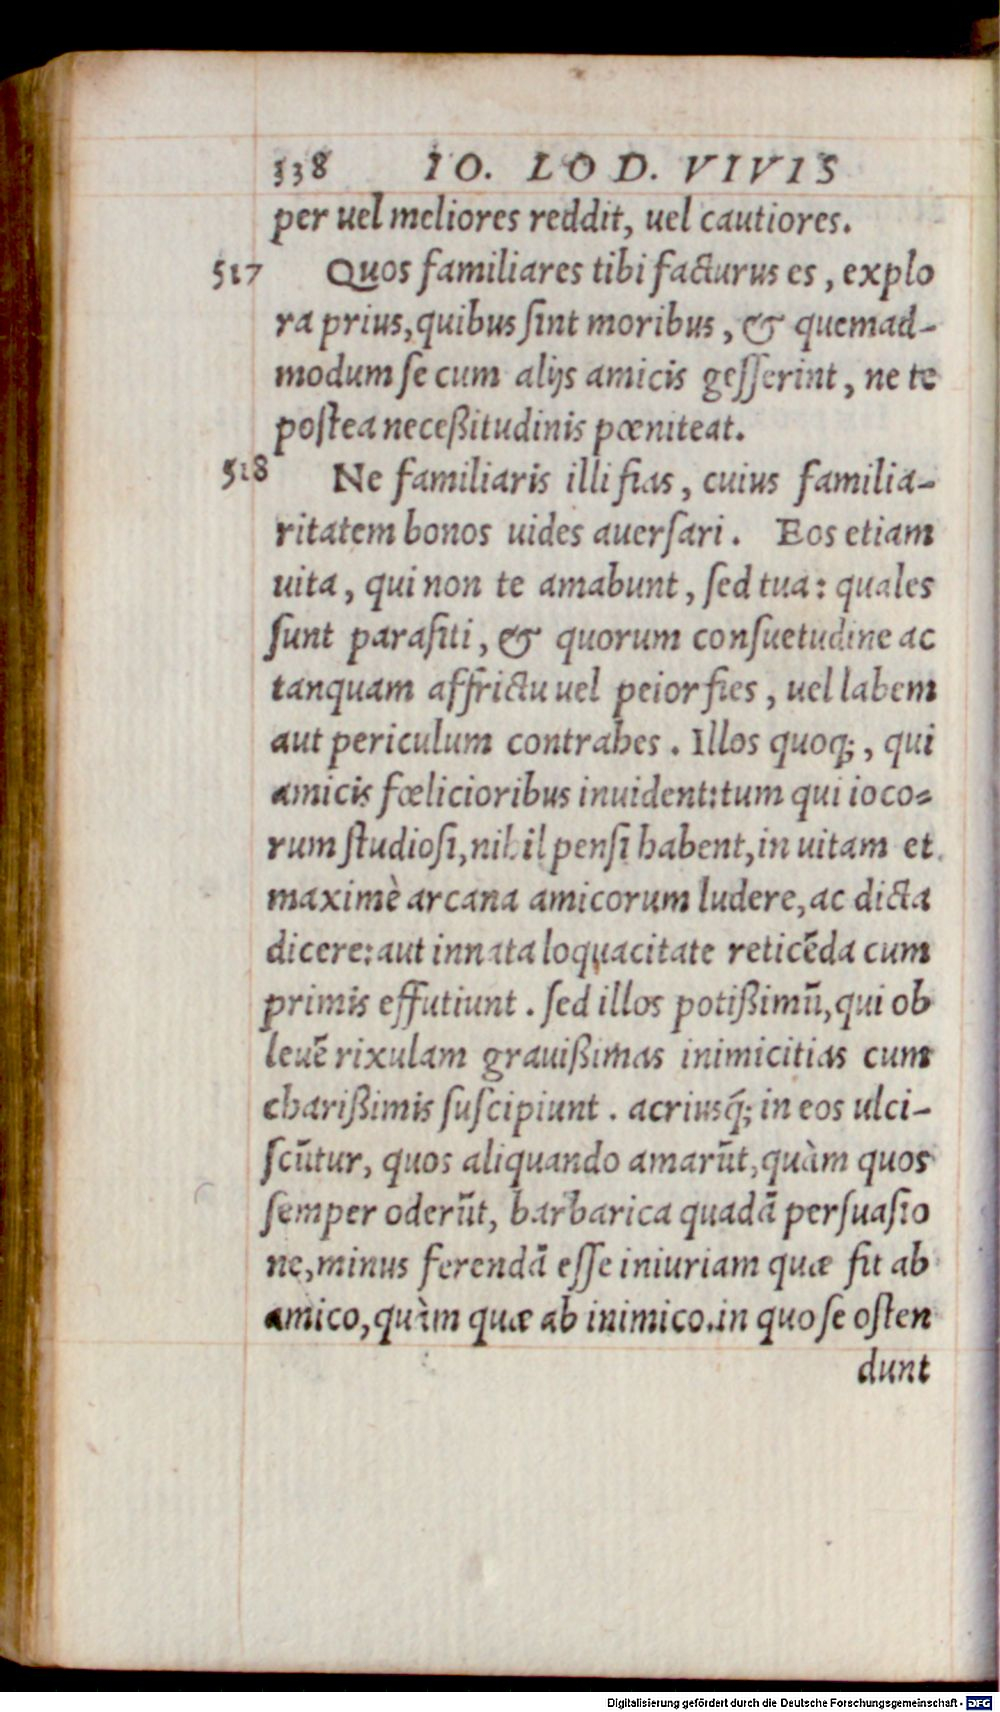 338 IO. LOD. VIVIS
per uel meliores reddit, uel cautiores.
517 Quos familiares tibi facturus es, explo
ra prius, quibus ſint moribus, & quemad-
modum ſe cum alijs amicis geſſerint, ne te
poſtea neceßitudinis pœniteat.
518 Ne familiaris illi fias, cuius familia-
ritatem bonos uides auerſari. Eos etiam
uita, qui non te amabunt, ſed tua: quales
ſunt paraſiti, & quorum conſuetudine ac
tanquam affrictu uel peior fies, uel labem
aut periculum contrahes. Illos quoq;, qui
amicis fœlicioribus inuident: tum qui ioco-
rum ſtudioſi, nihil penſi habent, in uitam et
maximè arcana amicorum ludere, ac dicta
dicere: aut innata loquacitate reticēda cum
primis effutiunt. ſed illos potißimū, qui ob
leuē rixulam grauißimas inimicitias cum
charißimis ſuſcipiunt. acriusq́; in eos ulci-
ſcūtur, quos aliquando amarūt, quàm quos
ſemper oderūt, barbarica quadā perſuaſio
ne, minus ferendā eſſe iniuriam quæ fit ab
amico, quàm quæ ab inimico. in quo ſe oſten
dunt
Digitalisierung gefördert durch die Deutsche Forschungsgemeinschaft - DFG